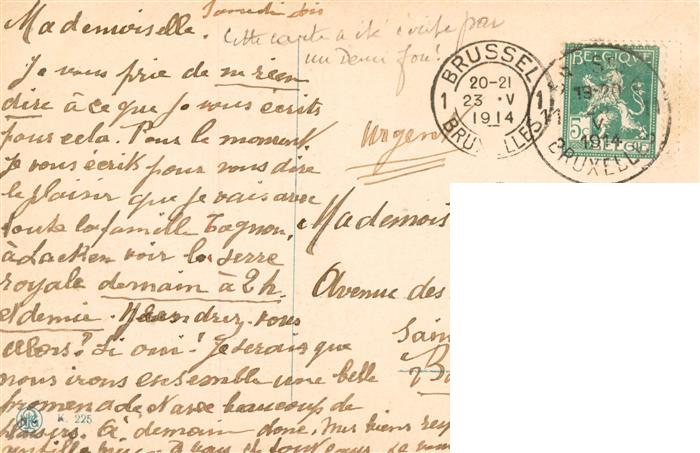 Samedi soir
Mademoiselle.
Cette carte a été écrite par
un Demi fou!
Je vous prie de ne rien
dire à ce que je vous écrits
pour cela. Pour le moment
je vous écrits pour vous dire
le plaisir que je vais avec
toute la famille
à Laeken voir la serre
royale demain à 2 h
et demie. Viendrez-vous
alors? Si oui! Je serais que
nous irons ensemble une belle
promenade et avec beaucoup de
plaisirs. A demain donc. Mes biens
Urgent
BRUSSEL
20-21
1 23 V 1
1914
BRUXELLES
BELGIQUE
5c
BELGIE
19-20
11 V
1914
BRUXELLES
Mademois
Avenue des
Sain
B
K. 225